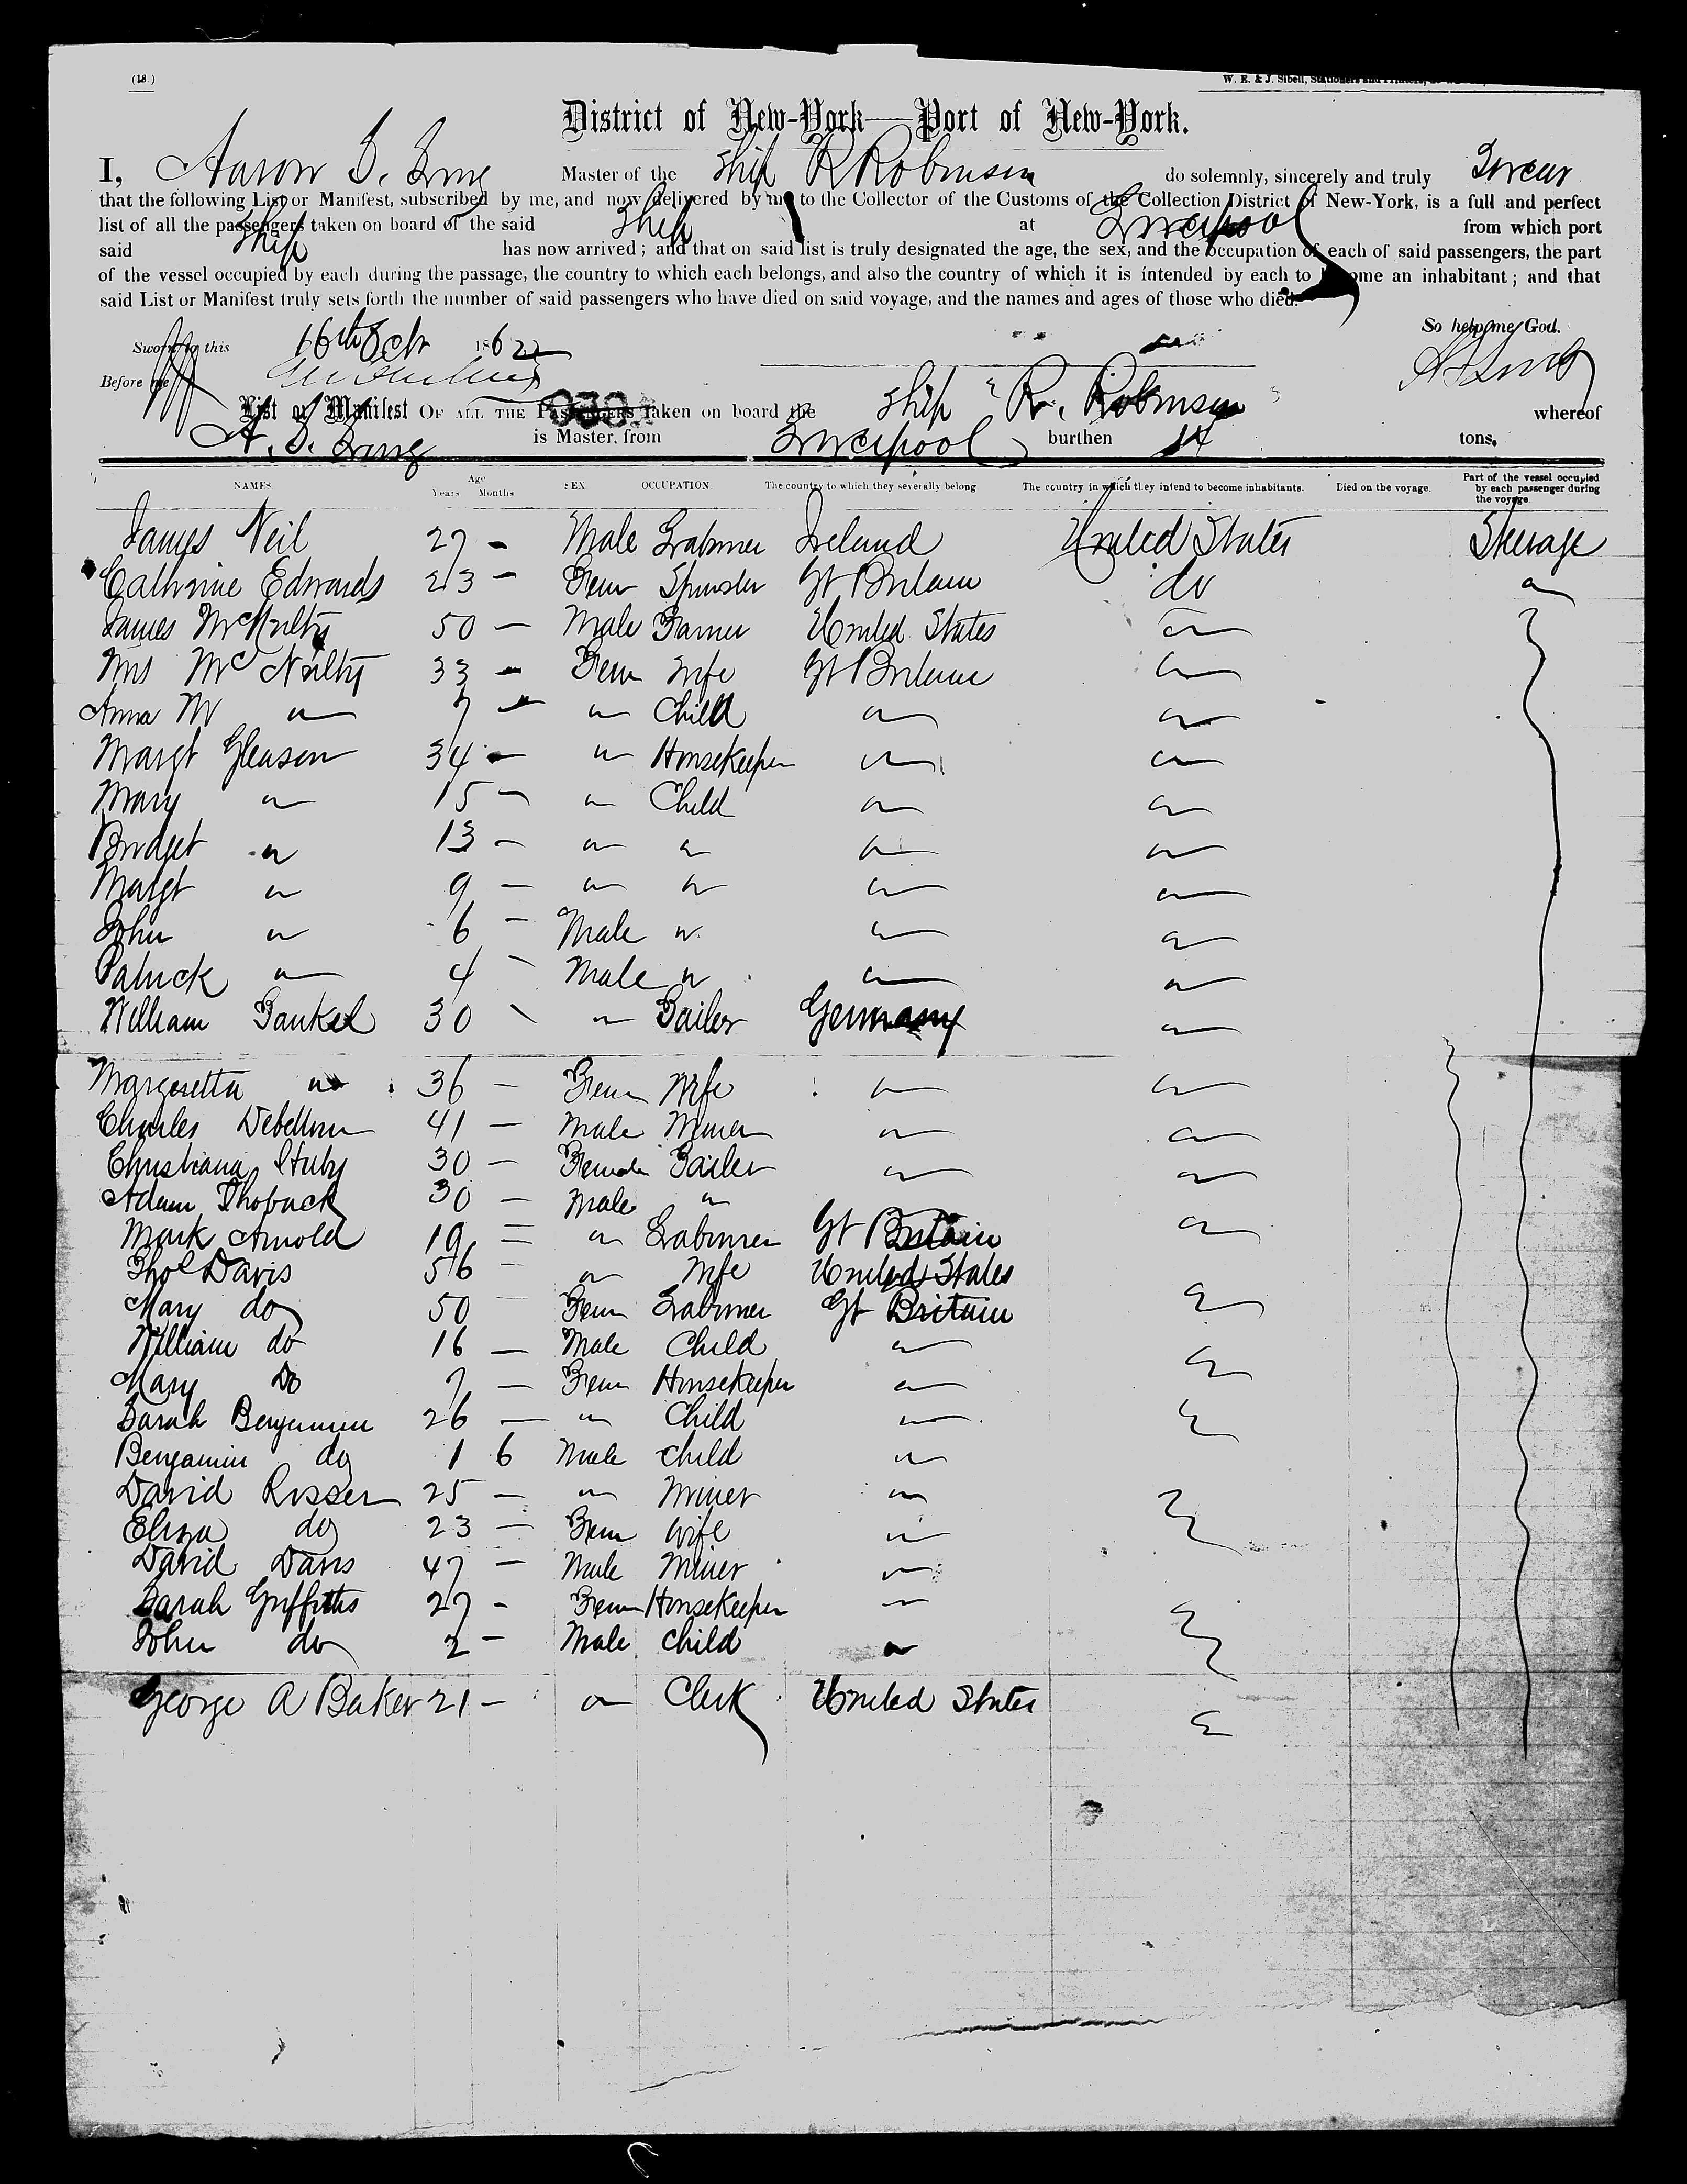 (18)
W. E. & J. Sibell, Stationers and Printers,
District of New-York—Port of New-York.
I, Aaron S. Master of the Ship R Robinson do solemnly, sincerely and truly Swear
that the following List or Manifest, subscribed by me, and now delivered by me to the Collector of the Customs of the Collection District of New-York, is a full and perfect
list of all the passengers taken on board of the said Ship at Liverpool from which port
said Ship has now arrived; and that on said list is truly designated the age, the sex, and the occupation of each of said passengers, the part
of the vessel occupied by each during the passage, the country to which each belongs, and also the country of which it is intended by each to become an inhabitant; and that
said List or Manifest truly sets forth the number of said passengers who have died on said voyage, and the names and ages of those who died.
So help me God.
Sworn to this 16th Oct 1862
Before me
List or Manifest OF ALL THE PASSENGERS taken on board the Ship R. Robinson whereof
A. S. is Master, from Liverpool burthen tons.
NAMES Age Years Months SEX OCCUPATION. The country to which they severally belong The country in which they intend to become inhabitants. Died on the voyage. Part of the vessel occupied by each passenger during the voyage
James Neil 27 - Male Labourer Ireland United States Steerage
Catherine Edwards 23 - Fem Spinster Gt Britain do
James McNulty 50 - Male Farmer United States
Mrs McNulty 33 - Fem Wife Gt Britain
Anna M 7 Child
Margt Gleason 34 - Housekeeper
Mary 15 - Child
Bridget 13 -
Margt 9 -
John 6 - Male
Patrick 4 - Male
William Gankel 30 Tailer Germany
Margeretta 36 - Fem Wife
Charles 41 - Male Miner
Christiana Stuby 30 - Female Tailer
Adam Thoback 30 - Male
Mark Arnold 19 Labourer Gt Britain
Thos Davis 56 - Wife United States
Mary do 50 Fem Labourer Gt Britain
William do 16 - Male Child
Mary Do 7 - Fem Housekeeper
Sarah Benjamin 26 - Child
Benjamin do 1 6 Male child
David Rosser 25 - Miner
Eliza do 23 - Fem wife
David Davis 47 - Male Miner
Sarah Griffiths 27 - Fem Housekeeper
John do 2 - Male child
George A Baker 21 - Clerk United States